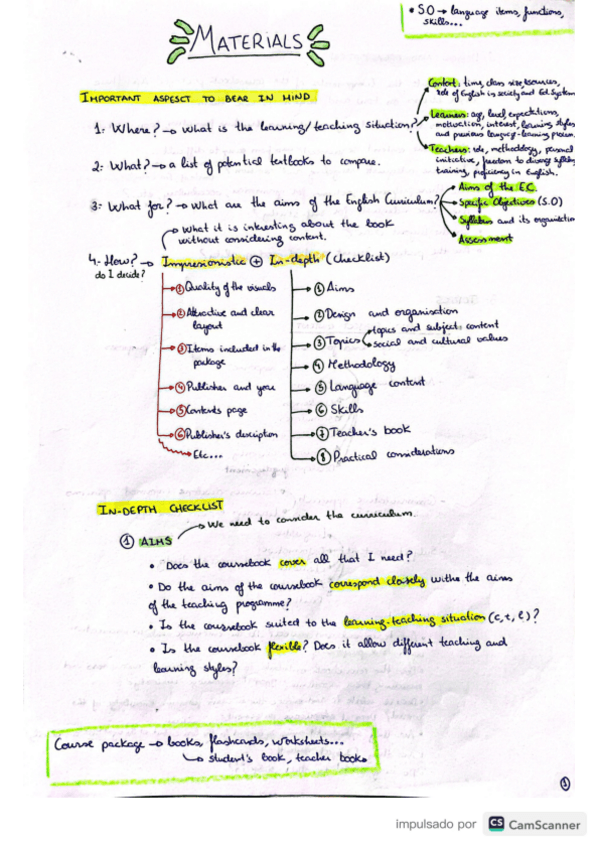 • SO → language items, functions,
skills...
MATERIALS
IMPORTANT ASPESCT TO BEAR IN MIND
Context: time, class size, resources,
role of English in society and Ed. System
1: Where? → What is the learning/teaching situation?
Learners: age, level, expectations,
motivation, interest, learning styles
and previous language-learning
Teachers: role, methodology, personal
initiative, freedom to diverge syllabus
training, proficiency in English.
2: What? → a list of potential textbooks to compare.
3: What for? → What are the aims of the English Curriculum?
Aims of the EC.
Specific Objectives (S.O)
Syllabus and its organisation
Assessment
What it is interesting about the book
without considering content.
4. How? → Impressionistic + In-depth (checklist)
do I decide?
① Quality of the visuals
② Attractive and clear
layout
③ Items included in the
package
④ Publisher and year
⑤ Contents page
⑥ Publisher's description
Etc...
① Aims
② Design and organisation
③ Topics
topics and subject content
social and cultural values
④ Methodology
⑤ Language content
⑥ Skills
⑦ Teacher's book
⑧ Practical considerations
IN-DEPTH CHECKLIST
We need to consider the curriculum.
① AIMS
• Does the coursebook cover all that I need?
• Do the aims of the coursebook correspond closely withe the aims
of the teaching programme?
• Is the coursebook suited to the learning-teaching situation (c, t, l)?
• Is the coursebook flexible? Does it allow different teaching and
learning styles?
Course package → books, flashcards, worksheets...
→ student's book, teacher book
①
impulsado por CS CamScanner